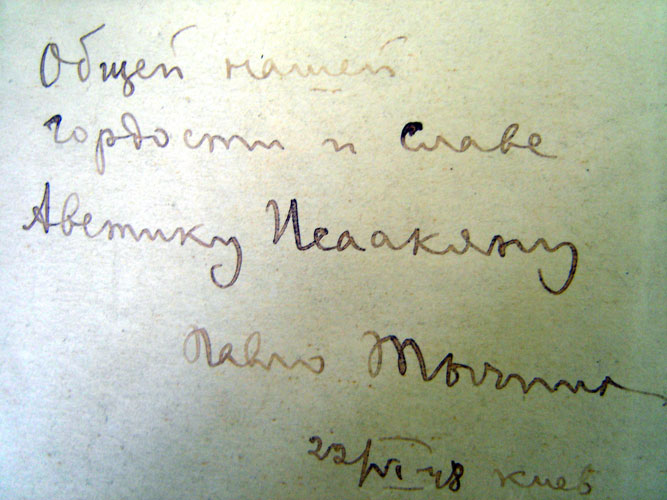 Общей нашей
гордости и славе
Аветику Исаакяну
Павло Тычина
22/VI 48 Киев